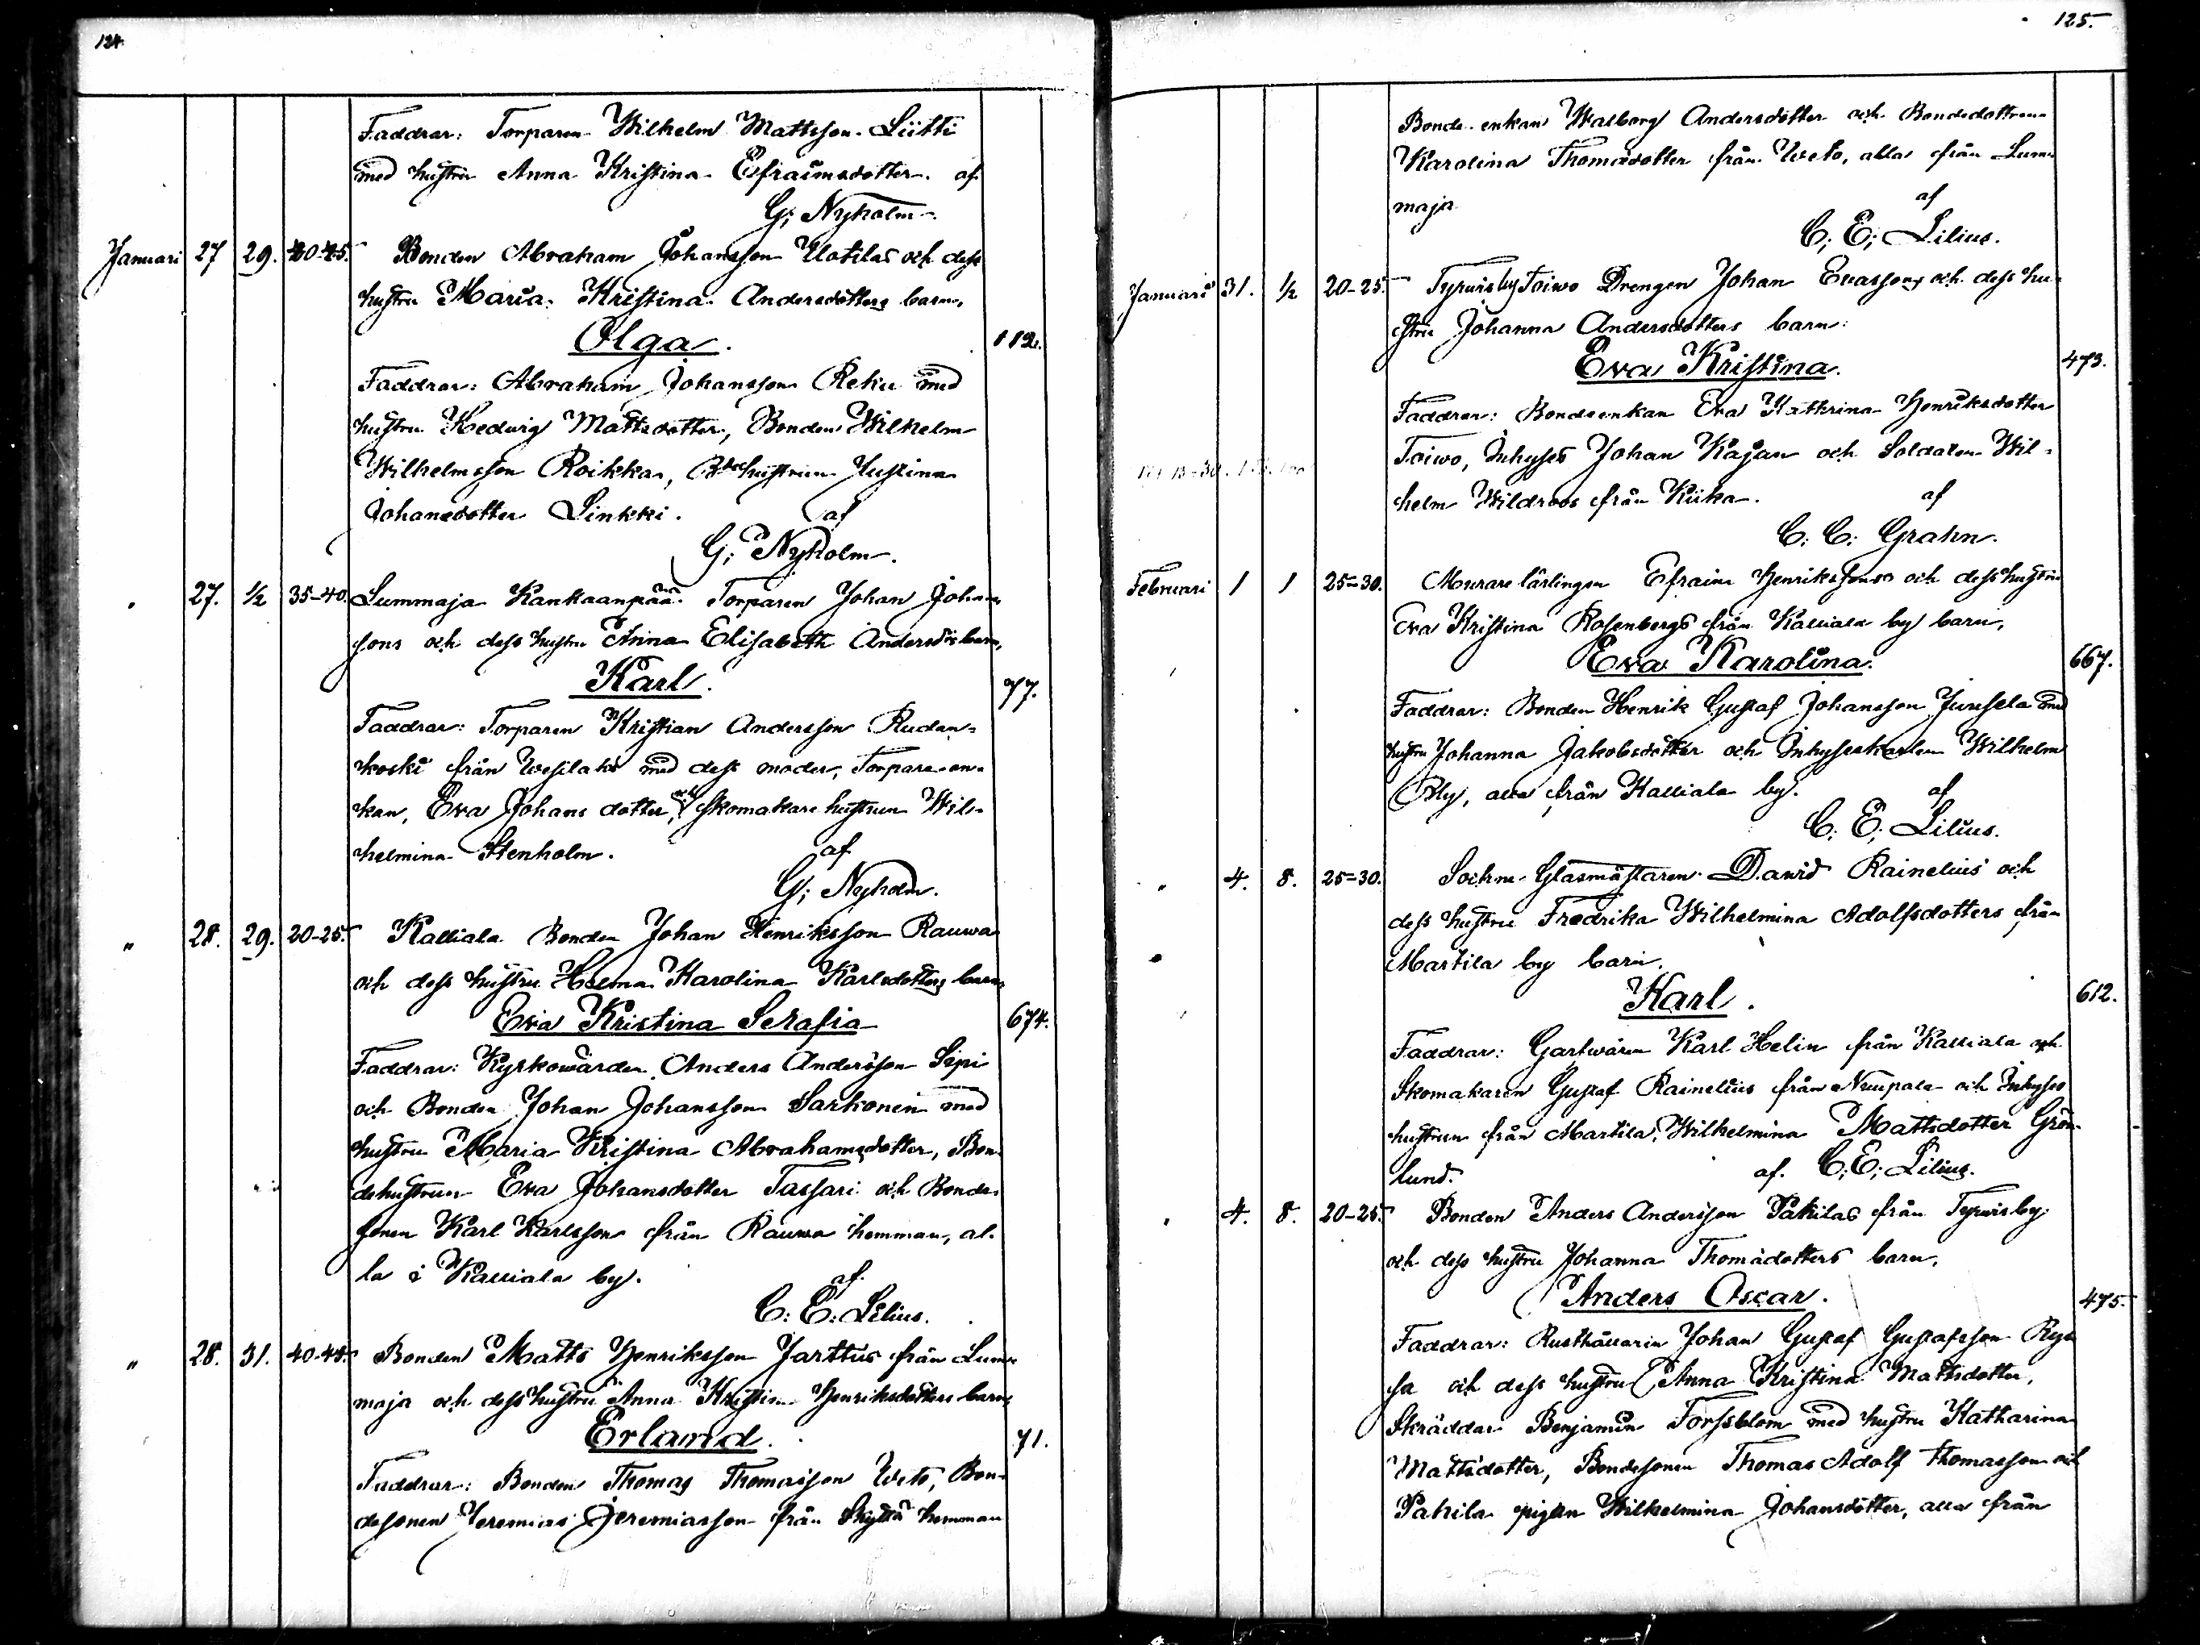 124.
Faddrar: Torparen Wilhelm Mattsson Liitti
med hustru Anna Kristina Efraimsdotter. af
G; Nyholm.
Januari 27 29. 40-45. Bonden Abraham Johansson Uotilas och dess
hustru Maria Kristina Andersdotters barn,
Olga. 112.
Faddrar: Abraham Johansson Reku med
hustru Hedwig Mattsdotter, Bonden Wilhelm
Wilhelmsson Roikka, Bde hustrun Justina
Johansdotter Linkki. af
G; Nyholm.
" 27. 1/2 35-40. Lummaja Kankaanpää Torparen Johan Johans
sons och dess hustru Anna Elisabeth Andersdrs barn,
Karl. 77.
Faddrar: Torparen Kristian Andersson Rudan-
koski från Wesilaks med dess moder, Torpare-en-
kan, Eva Johansdotter, och Skomakare hustrun Wil-
helmina Stenholm. af
G; Nyholm.
" 28. 29. 20-25. Kalliala Bonden Johan Henriksson Rauwa
och dess hustru Helma Karolina Karlsdotters barn,
Eva Kristina Serafia 674.
Faddrar: Kyrkowärden Anders Andersson Sipi
och Bonden Johan Johansson Sarkonen med
hustru Maria Kristina Abrahamsdotter, Bon-
dehustrun Eva Johansdotter Tassari och Bonde-
sonen Karl Karlsson från Rauwa hemman, al-
la i Kalliala by. af
C: E: Lilius.
" 28. 31. 40-45. Bonden Matts Henriksson Jarttus från Lum-
maja och dess hustru Anna Kristina Henriksdotters barn,
Erland. 71.
Faddrar: Bonden Thomas Thomasson Ueto, Bon-
desonen Jeremias Jeremiasson från Skyttä hemman
125.
Bonde-enkan Walborg Andersdotter och Bondedottren
Karolina Thomasdotter från Ueto, alla från Lum-
maja af
C; E; Lilius.
Januari 31. 1/2 20-25. Tyrwisby Toiwo Drengen Johan Evassons och dess hu-
stru Johanna Andersdotters barn:
Eva Kristina. 473.
Faddrar: Bondeenkan Eva Kathrina Henriksdotter
Toiwo, Inhyses Johan Kajan och Soldaten Wil-
helm Wildroos från Kiika. af
C: C: Grahn.
Februari 1 1 25-30. Murare lärlingen Efraim Henrikssons och dess hustru
Eva Kristina Rosenbergs från Kalliala by barn,
Eva Karolina. 667.
Faddrar: Bonden Henrik Gustaf Johansson Junsela med
hustru Johanna Jakobsdotter och Inhyseskarlen Wilhelm
Oly, alla från Kalliala by. af
C: E; Lilius.
" 4. 8. 25-30. Sockne-Glasmästaren Dawid Rainelius och
dess hustru Fredrika Wilhelmina Adolfsdotters från
Martila by barn.
Karl. 612.
Faddrar: Gartwären Karl Helin från Kalliala och
Skomakaren Gustaf Rainelius från Nuupala och Inhyses
hustrun från Martila, Wilhelmina Mattsdotter Grön-
lund. af. C; E; Lilius.
" 4. 8. 20-25. Bonden Anders Andersson Pakilas från Tyrwisby
och dess hustru Johanna Thomasdotters barn,
Anders Oscar. 475.
Faddrar: Rusthållarin Johan Gustaf Gustafsson Rys
sa och dess hustru Anna Kristina Mattsdotter,
Skräddar Benjamin Forssblom med hustru Katharina
Mattsdotter, Bondesonen Thomas Adolf Thomasson och
Pakila pigan Wilhelmina Johansdotter, alla från